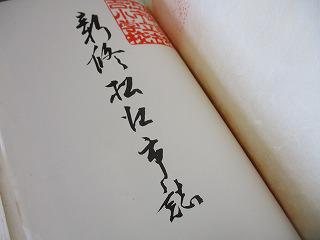 新修松江市誌